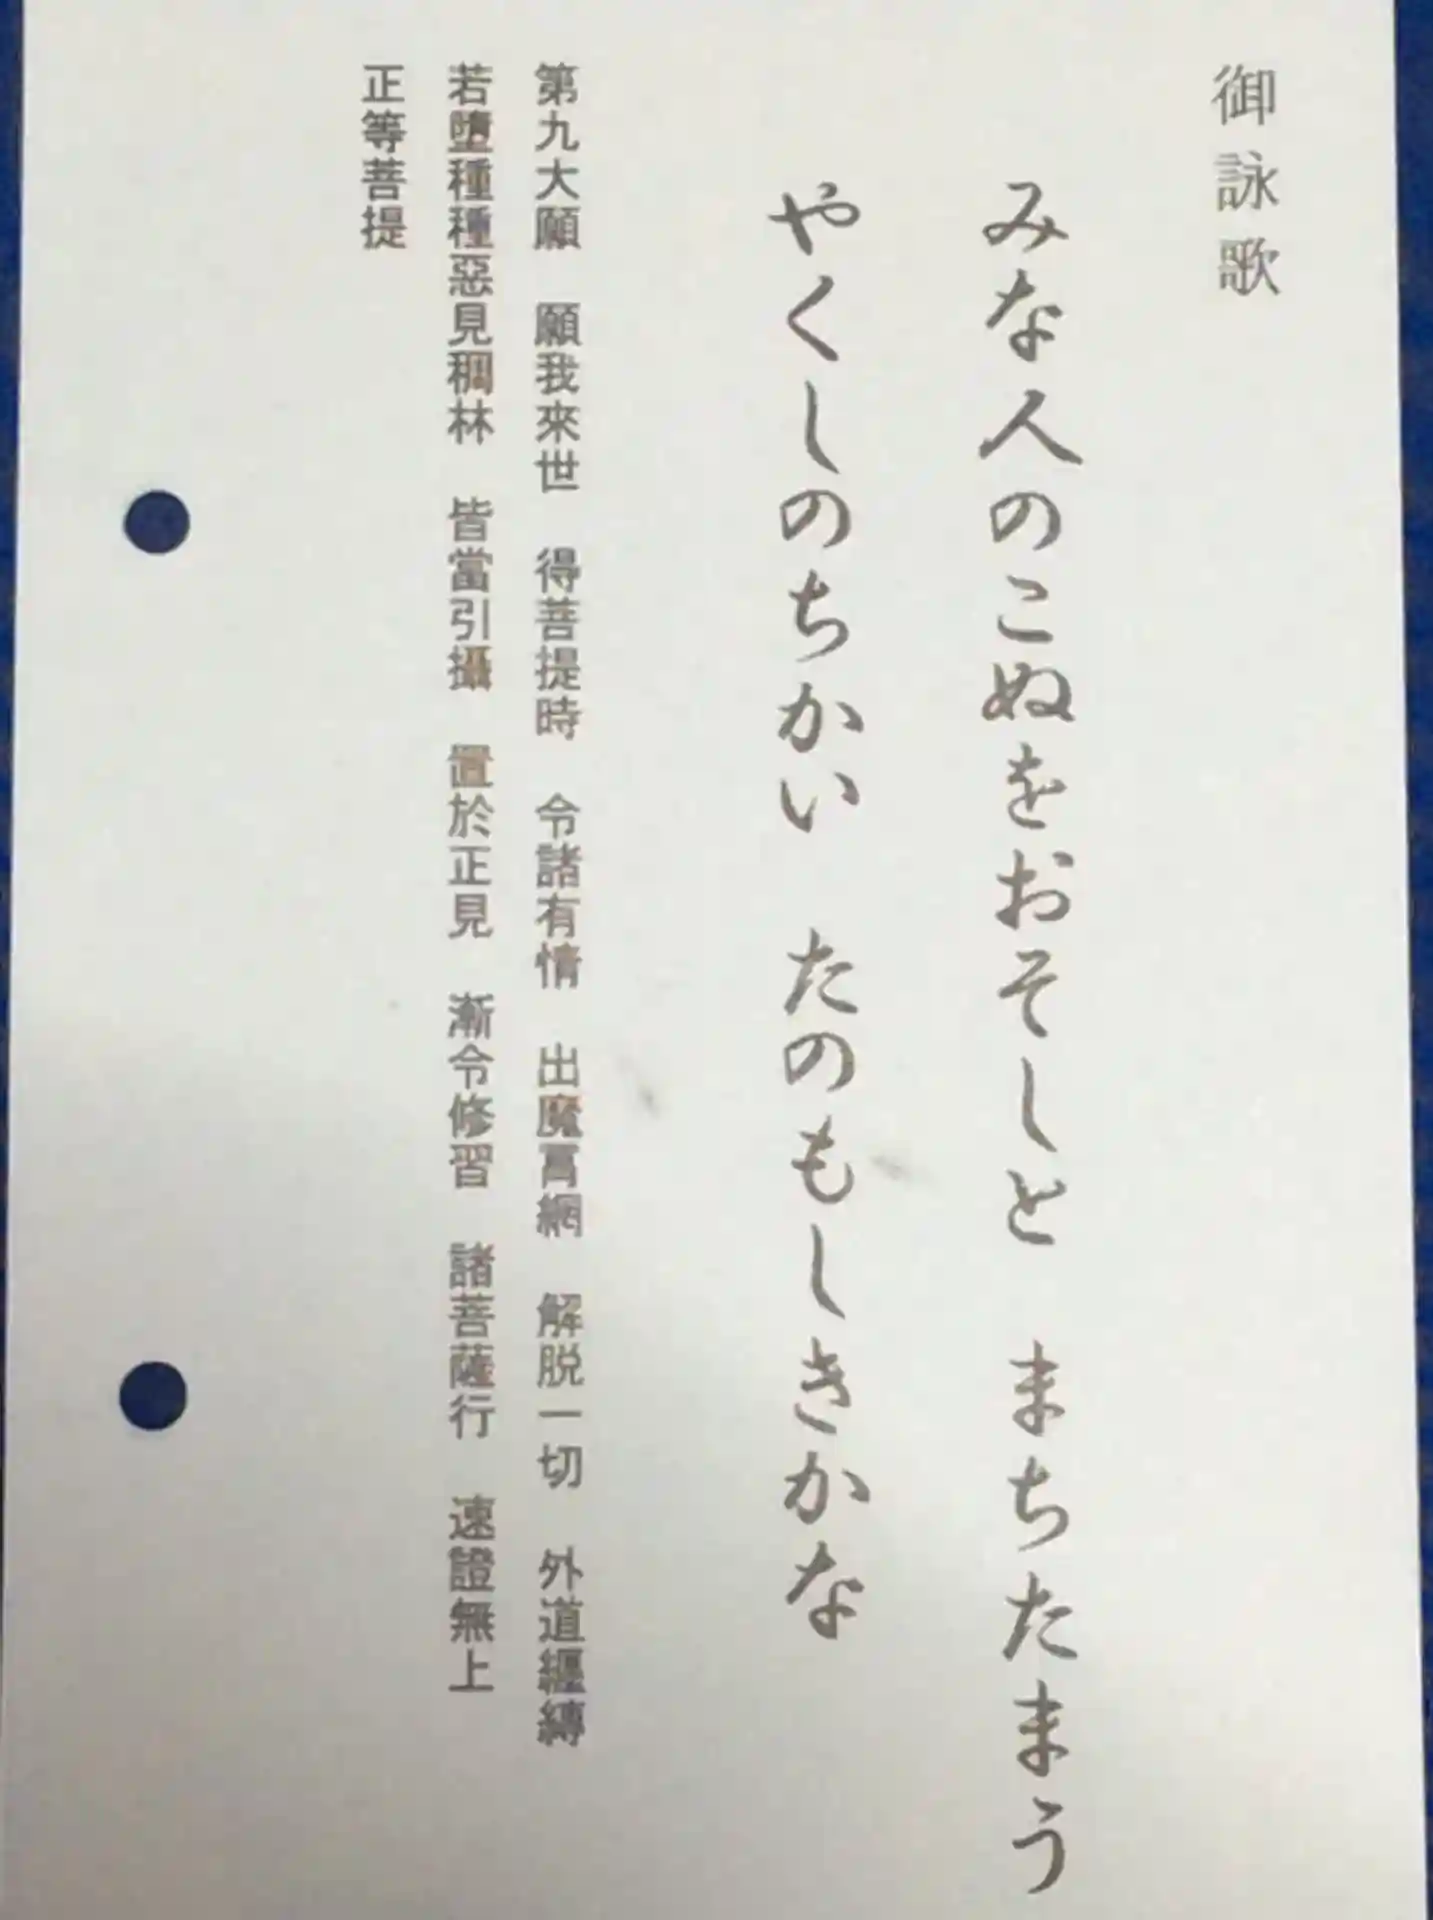 御詠歌
みな人のこぬをおそしと　まちたまう
やくしのちかい　たのもしきかな
第九大願　願我來世　得菩提時　令諸有情　出魔罥網　解脱一切　外道纒縛
若墮種種惡見稠林　皆當引攝　置於正見　漸令修習　諸菩薩行　速證無上
正等菩提